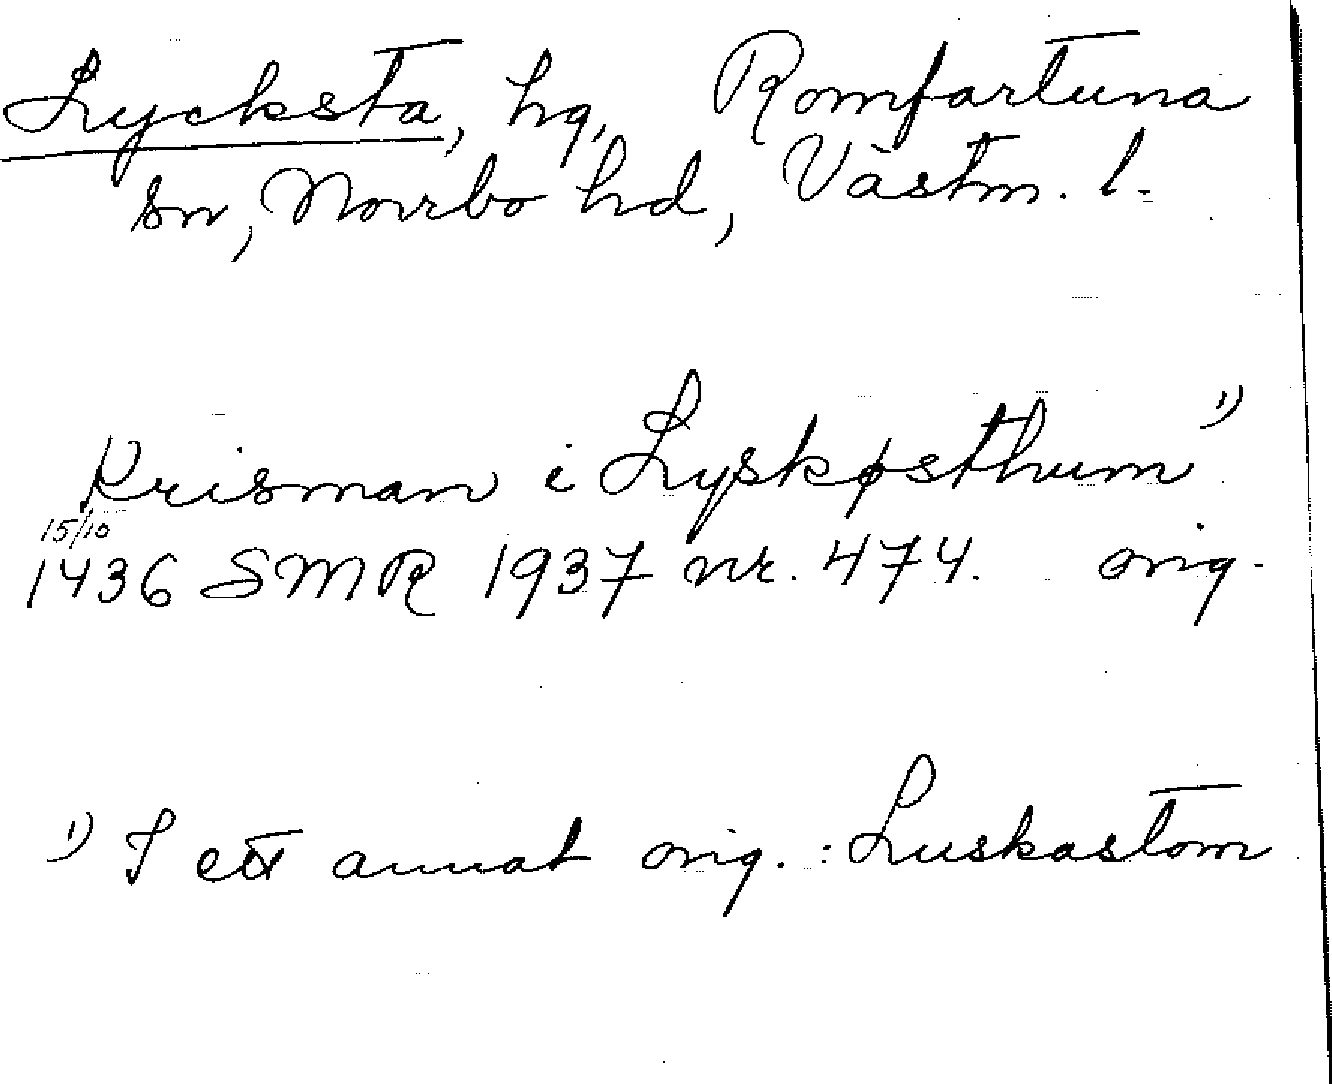 Lycksta, hg, Romfartuna
sn, Norrbo hd, Västm. l.
Krisman i Lyskøsthum 1)
15/10
1436 SMR 1937 nr. 474. orig.
1) I ett annat orig.: Luskastom